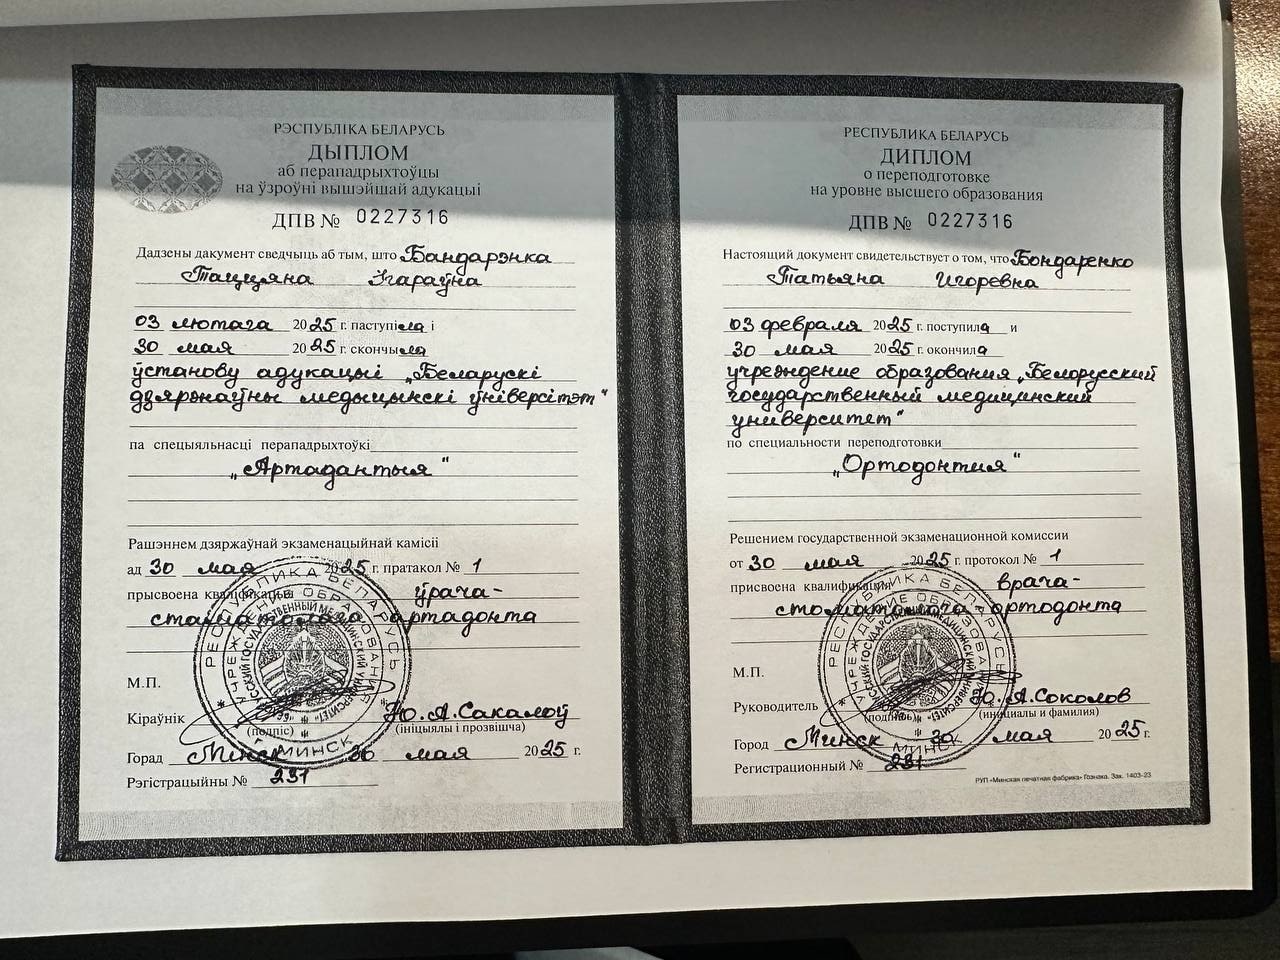 РЭСПУБЛІКА БЕЛАРУСЬ
ДЫПЛОМ
аб перападрыхтоўцы
на ўзроўні вышэйшай адукацыі
ДПВ № 0227316
Дадзены дакумент сведчыць аб тым, што Бандарэнка
Таццяна Ігараўна
03 лютага 2025 г. паступіла і
30 мая 2025 г. скончыла
ўстанову адукацыі „Беларускі
дзяржаўны медыцынскі ўніверсітэт"
па спецыяльнасці перападрыхтоўкі
„Артадантыя"
Рашэннем дзяржаўнай экзаменацыйнай камісіі
ад 30 мая 2025 г. пратакол № 1
прысвоена кваліфікацыя ўрача-
стаматолага-артадонта
М.П.
Кіраўнік Ю.А.Сакалоў
(подпіс) (ініцыялы і прозвішча)
Горад Мінск 30 мая 2025 г.
Рэгістрацыйны № 231
РЕСПУБЛИКА БЕЛАРУСЬ
УЧРЕЖДЕНИЕ ОБРАЗОВАНИЯ
МИНСК
РЕСПУБЛИКА БЕЛАРУСЬ
ДИПЛОМ
о переподготовке
на уровне высшего образования
ДПВ № 0227316
Настоящий документ свидетельствует о том, что Бондаренко
Татьяна Игоревна
03 февраля 2025 г. поступила и
30 мая 2025 г. окончила
учреждение образования „Белорусский
государственный медицинский
университет"
по специальности переподготовки
„Ортодонтия"
Решением государственной экзаменационной комиссии
от 30 мая 2025 г. протокол № 1
присвоена квалификация врача-
стоматолога-ортодонта
М.П.
Руководитель Ю.А.Соколов
(подпись) (инициалы и фамилия)
Город Минск 30 мая 2025 г.
Регистрационный № 231
РУП «Минская печатная фабрика» Гознака. Зак. 1403-23
РЕСПУБЛИКА БЕЛАРУСЬ
УЧРЕЖДЕНИЕ ОБРАЗОВАНИЯ
МИНСК